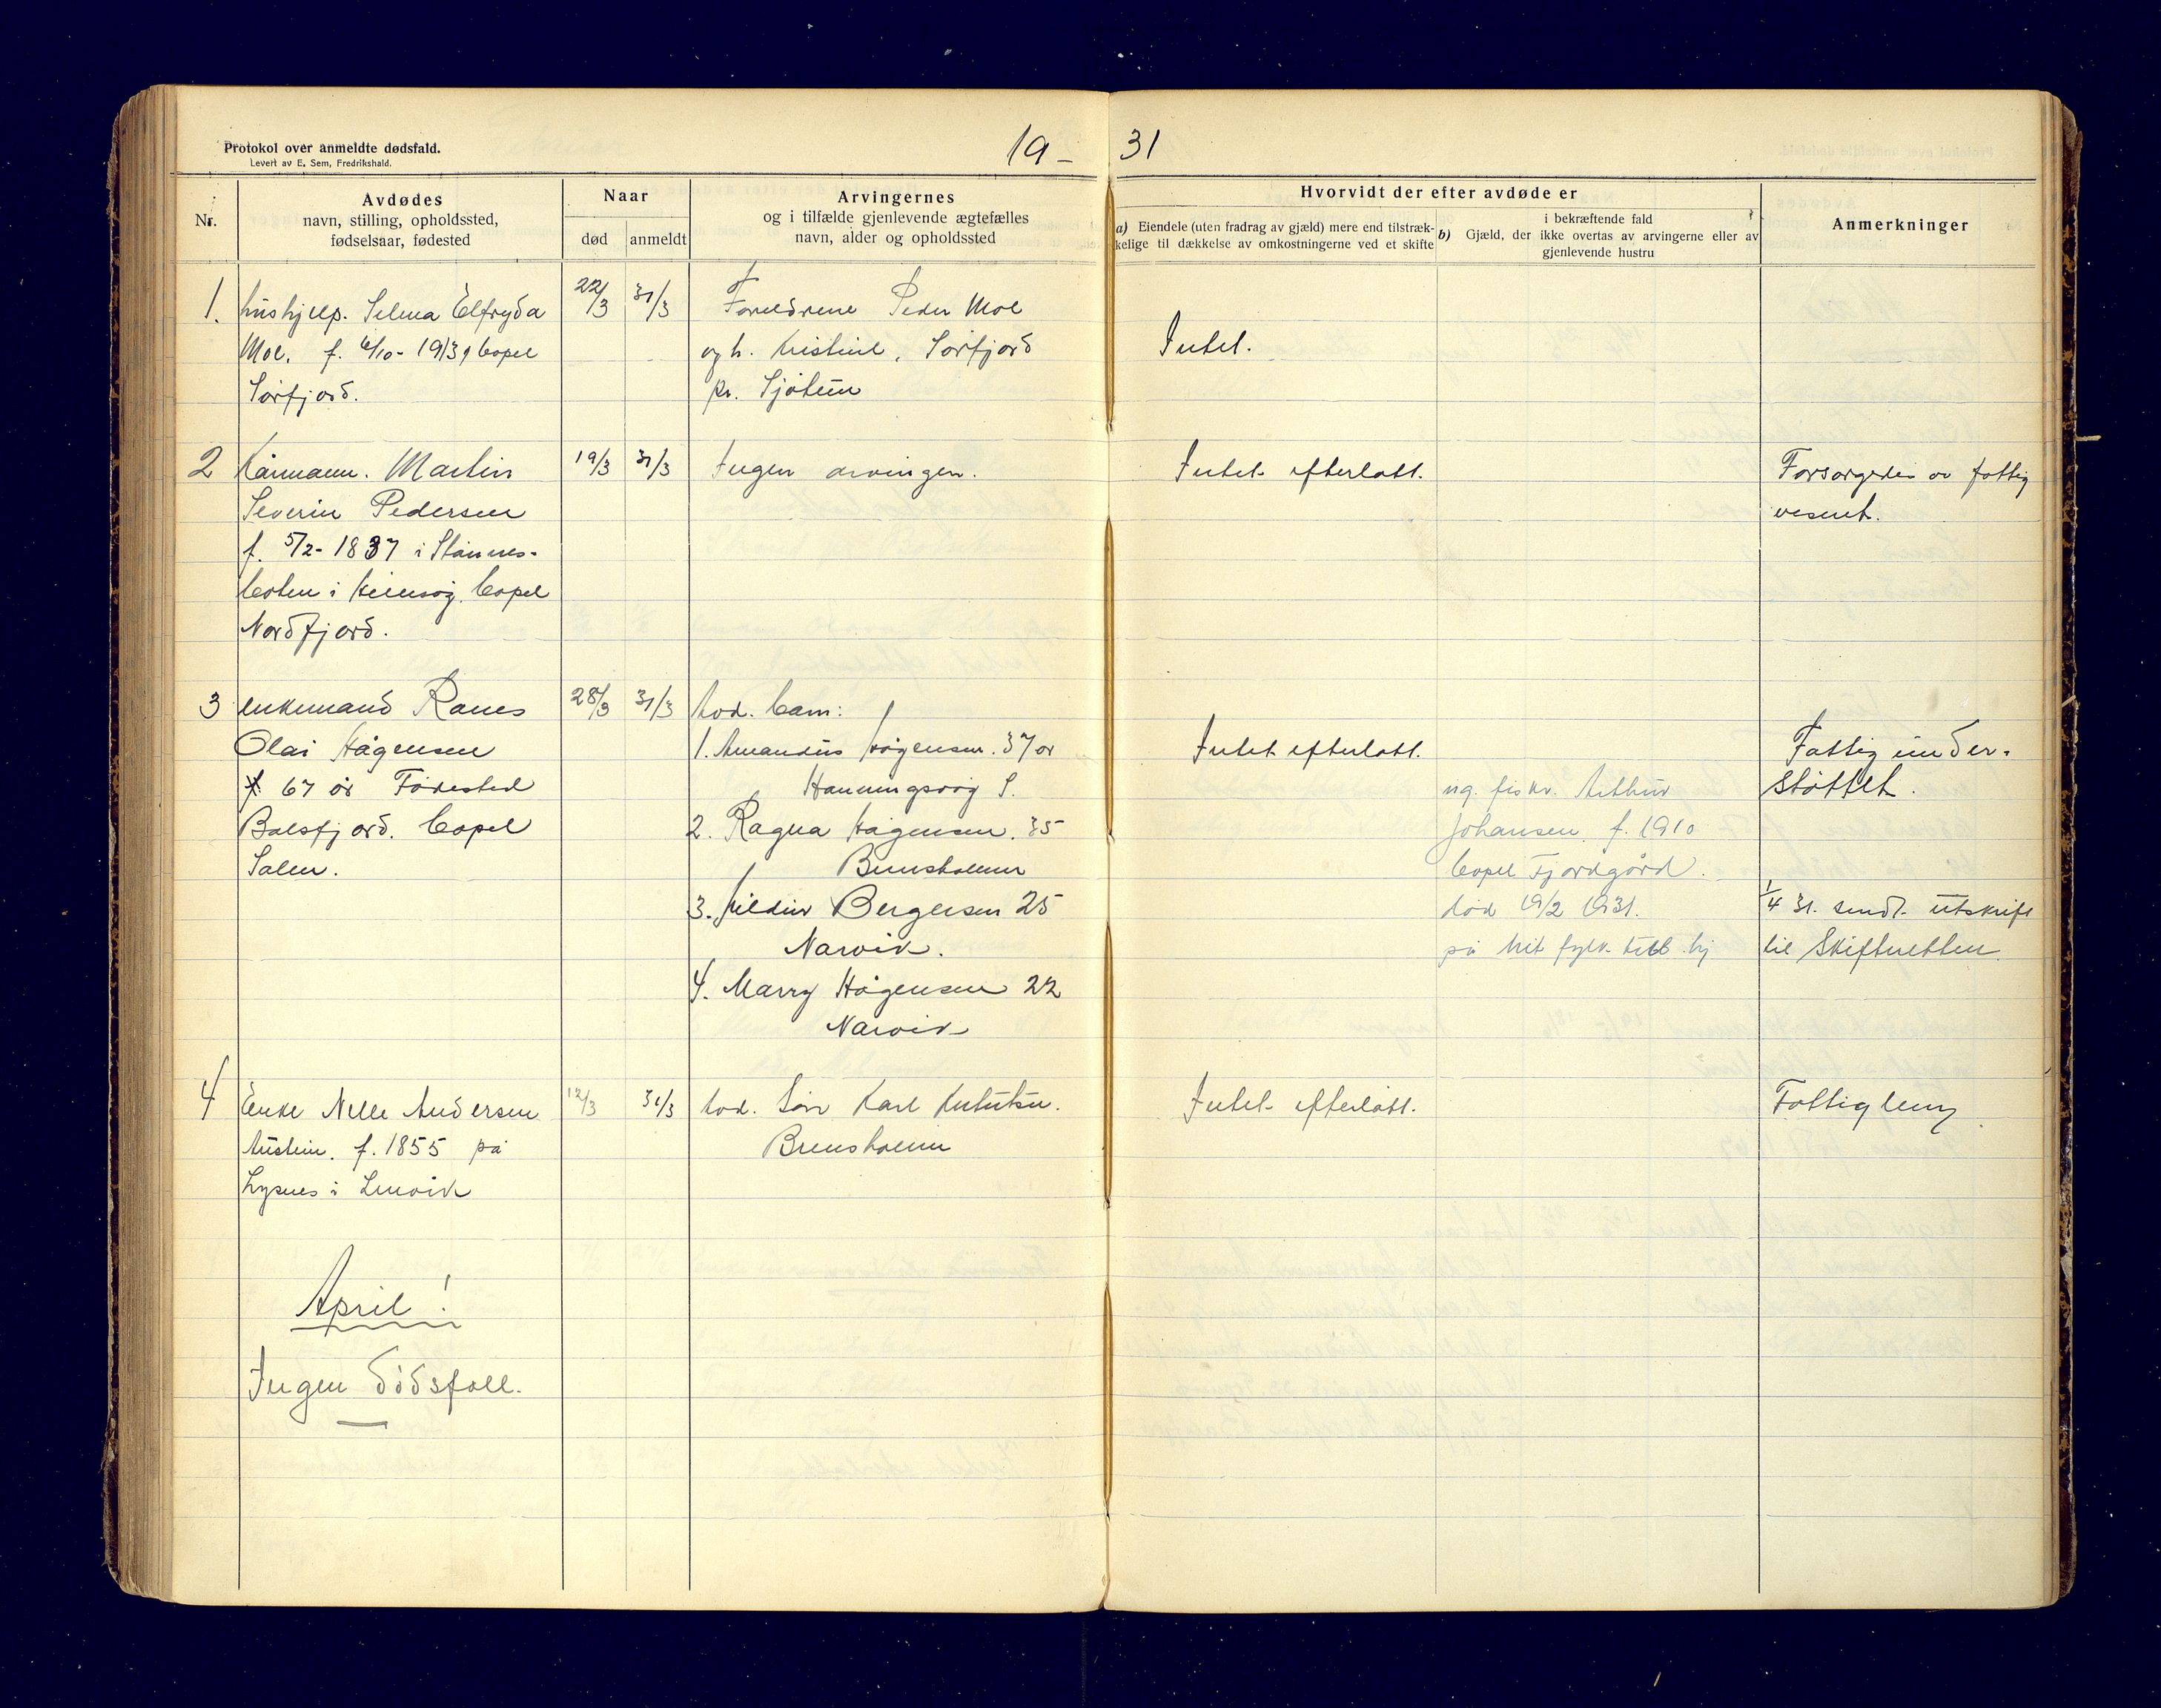 Protokol over anmeldte dødsfald.
Levert av E. Sem, Fredrikshald.
19 – 31
Nr.
Avdødes
navn, stilling, opholdssted,
fødselsaar, fødested
Naar
død
anmeldt
Arvingernes
og i tilfælde gjenlevende ægtefælles
navn, alder og opholdssted
Hvorvidt der efter avdøde er
a) Eiendele (uten fradrag av gjæld) mere end tilstræk-
kelige til dækkelse av omkostningerne ved et skifte
b) Gjæld, der i bekræftende fald
ikke overtas av arvingerne eller av
gjenlevende hustru
Anmerkninger
1. hushjelp. Selma Elfryda
Moe, f. 6/10- 1913, bopel
Sørfjord.
22/3
31/3
Foreldrene Peder Moe
og h. Kristine, Sørfjord
pr. Sjøtun
Intet.
2 Kårmann. Martin
Severin Pedersen
f. 5/2- 1837 i
i bopel
Nordfjord.
19/3
31/3
Ingen arvinger.
Intet efterlatt.
Forsørgedes av fattig
vesnet.
3 enkemand Ranes
Olai Hågensen
f. 67 år Fødested
Balsfjord. bopel
Salen.
28/3
31/3
Avd. barn:
1. Amandus Hågensen. 37 år
Honningsvåg S.
2. Ragna Hågensen. 35
Brensholmen
3. Hildur Bergersen 25
Narvik.
4. Marry Hågensen 22
Narvik
Intet efterlatt.
Fattigunder-
støttet.
ug. fisker. Arthur
Johansen. f. 1910
bopel Fjordgård.
død 19/2 1931.
på
1/4 31. sendt utskrift
til Skifteretten.
4 Enke Nelle Andersen
Austein. f. 1855 på
Lysnes i Lenvik
12/3
31/3
Avd. Søn Karl Knutsen.
Brensholmen
Intet efterlatt.
Fattiglem
April!
Ingen dødsfall.